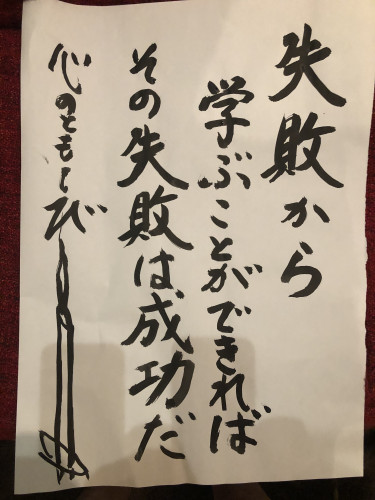 失敗から
学ぶことができれば
その失敗は成功だ
心のともしび